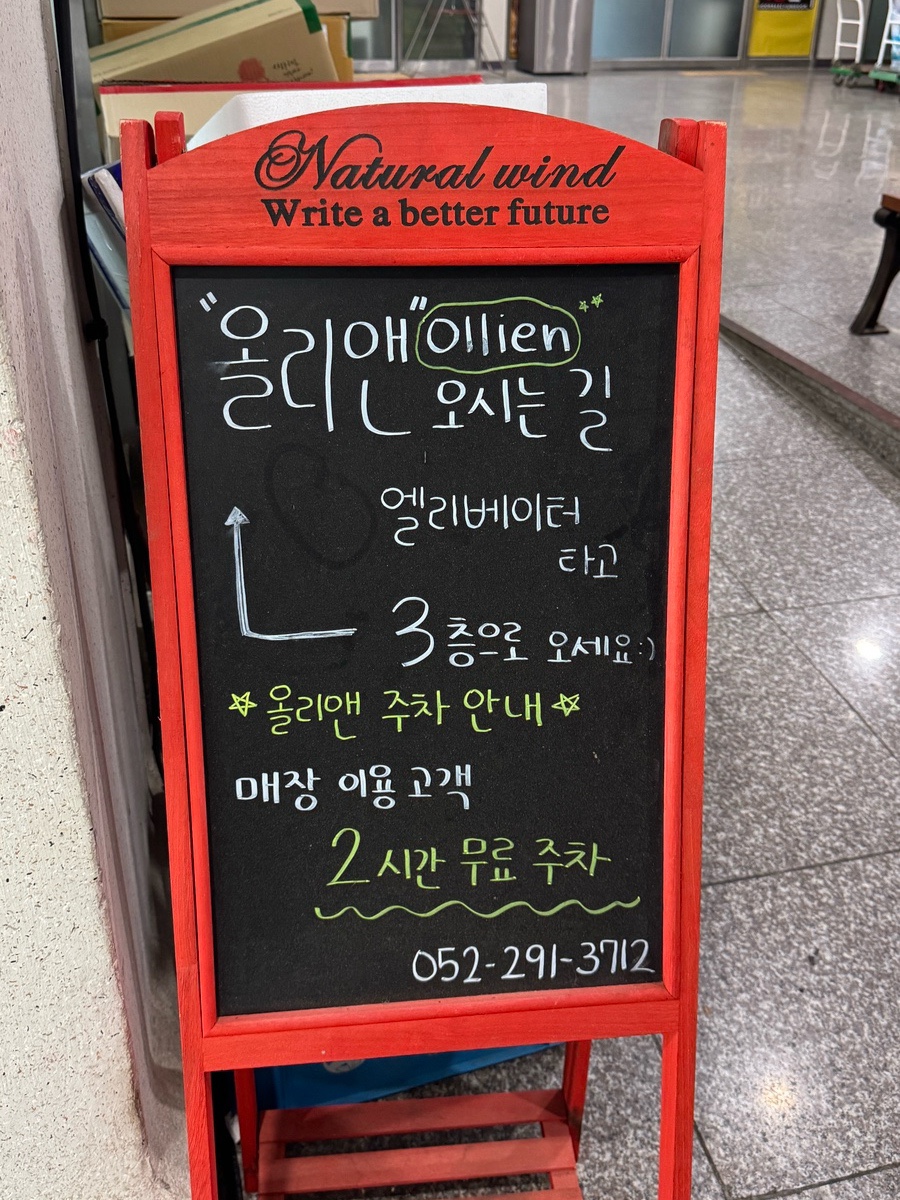 Natural wind
Write a better future
"올리앤" Ollien
오시는 길
엘리베이터
타고
3층으로 오세요:)
☆올리앤 주차 안내☆
매장 이용 고객
2시간 무료 주차
052-291-3712